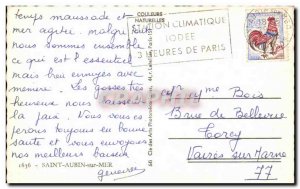 temps maussade et
mer agitée. malgré
nous sommes ensemble
ce qui est essentiel
mais bien ennuyés avec
mémère. Les gosses très
heureux nous laissent
la paix. Nous vous
espérons toujours en bonne
santé et vous envoyons
nos meilleurs baisers
1636 - SAINT-AUBIN-sur-MER
COULEURS
NATURELLES
STATION CLIMATIQUE
IODÉE
3 HEURES DE PARIS
Mme Bois
Rue de Bellevue
Torcy
Vaires sur Marne
77